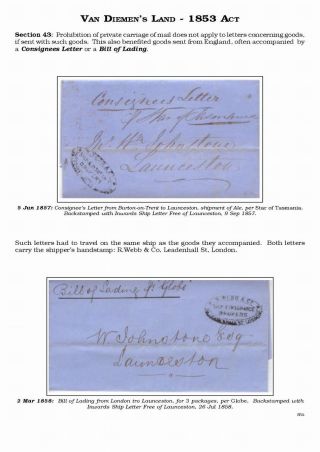 VAN DIEMEN'S LAND - 1853 ACT
Section 43: Prohibition of private carriage of mail does not apply to letters concerning goods,
if sent with such goods. This also benefited goods sent from England, often accompanied by
a Consignees Letter or a Bill of Lading.
Consignees Letter
p Star of Tasmania
Mr Wm Johnstone
Launceston
5 Jun 1857: Consignee's Letter from Burton-on-Trent to Launceston, shipment of Ale, per Star of Tasmania.
Backstamped with Inwards Ship Letter Free of Launceston, 9 Sep 1857.
Such letters had to travel on the same ship as the goods they accompanied. Both letters
carry the shipper's handstamp: R.Webb & Co. Leadenhall St. London.
Bill of Lading pr Globe
R. WEBB & Co
W. Johnstone Esq
Launceston
2 Mar 1858: Bill of Lading from London tro Launceston, for 3 packages, per Globe. Backstamped with
Inwards Ship Letter Free of Launceston, 26 Jul 1858.